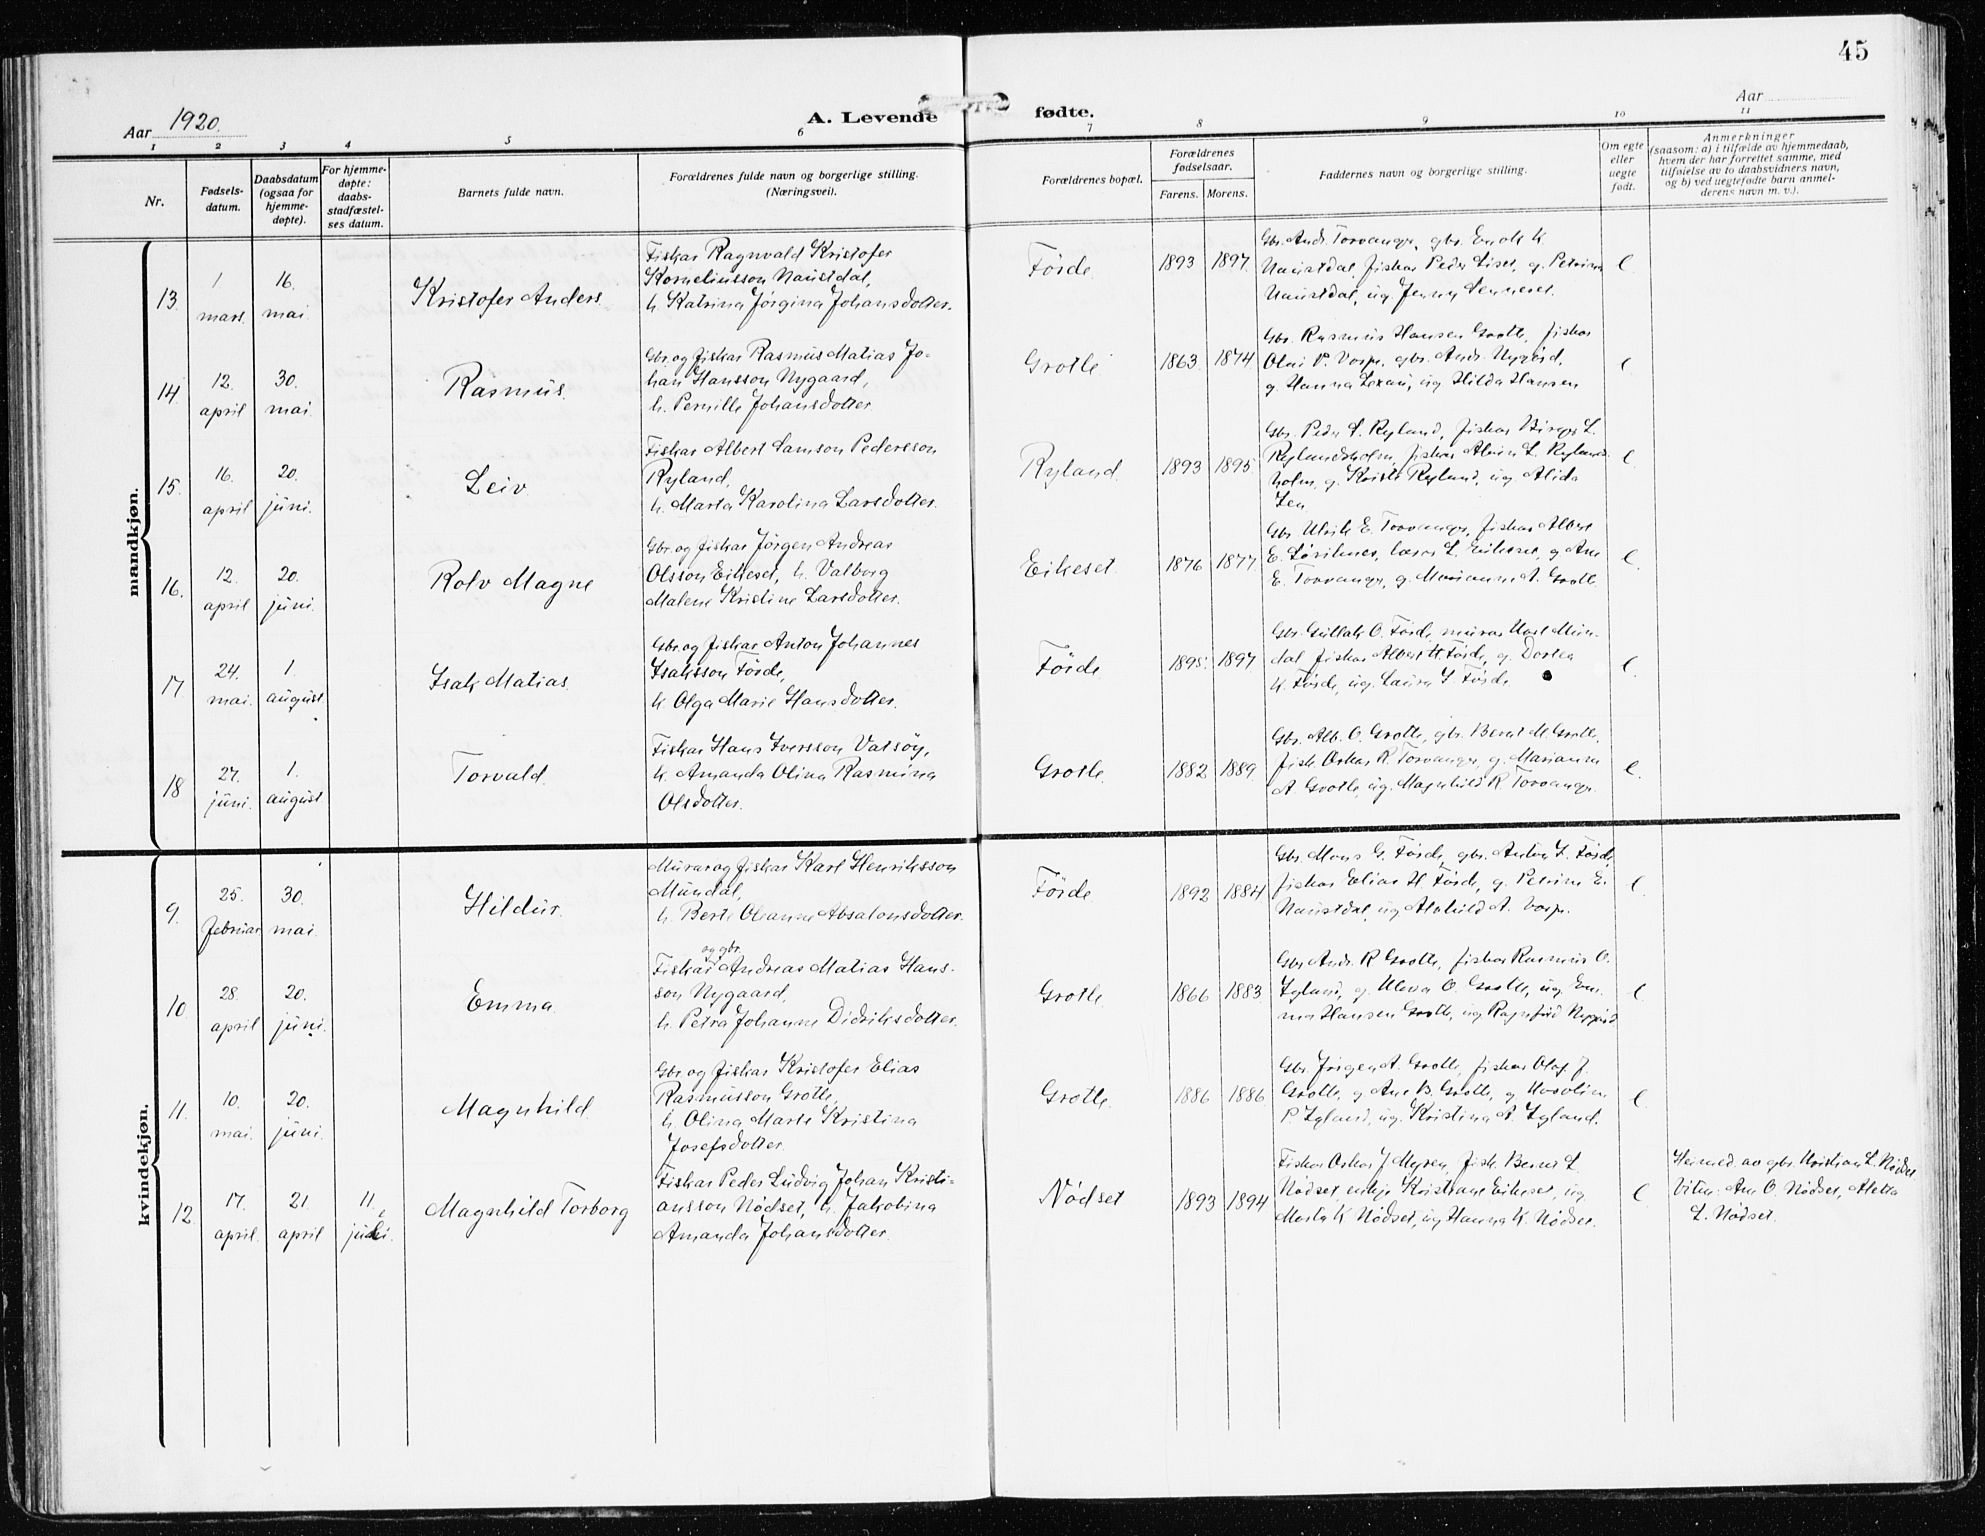 45
Aar 1920.
A. Levende fødte.
Aar
1 2 3 4 5 6 7 8 9 10 11
Nr.
Fødsels-
datum.
Daabsdatum
(ogsaa for
hjemme-
døpte).
For hjemme-
døpte:
daabs-
stadfæstel-
ses datum.
Barnets fulde navn.
Forældrenes fulde navn og borgerlige stilling.
(Næringsvei).
Forældrenes bopæl.
Forældrenes
fødselsaar.
Farens. Morens.
Faddernes navn og borgerlige stilling.
Om egte
eller
uegte
født.
Anmerkninger
(saasom: a) i tilfælde av hjemmedaab,
hvem der har forrettet samme, med
tilføielse av to daabsvidners navn,
og b) ved uegtefødte barn anmel-
derens navn m. v.).
mandkjøn.
13.
1
mars.
16.
mai.
Kristofer Anders.
Fiskar Ragnvald Kristofer
Korneliusson Naustdal,
h. Katrina Jørgina Johansdotter.
Förde.
1893 1897.
Gbr. Andr. Torvanger, gbr. Enok K.
Naustdal, fiskar Peder Liset, g. Petrina
Naustdal, ug. Jenny Senneset.
e.
14.
12.
april
30.
mai.
Rasmus.
Gbr. og fiskar Rasmus Matias Jo-
han Hansson Nygaard,
h. Pernille Johansdotter.
Grotle
1863. 1874.
Gbr. Rasmus Hansen Grotle, fiskar
Olai P. Vorpe, gbr. Andr. Nygård,
g. Hanna Lexau, ug. Hilda Hansen
e
15.
16.
april
20.
juni.
Leiv
Fiskar Albert Samson Pedersson
Ryland,
h. Marta Karolina Larsdotter.
Ryland.
1893 1895.
Gbr. Peder S. Ryland, fiskar Birger L.
Rylandsholm, fiskar Alvin L. Rylands-
holm, g. Kristi Ryland, ug. Alida
e.
16.
12.
april
20.
juni.
Rolv Magne
Gbr. og fiskar Jörgen Andreas
Olsson Eikeset, h. Valborg
Malene Kristine Larsdotter.
Eikeset.
1876 1877.
Gbr. Ulrik E. Torvanger, fiskar Albert
E. Torvanger, g. Marianne A. Grotle
e.
17
24.
mai.
1.
august.
Isak Matias.
Gbr. og fiskar Anton Johannes
Isaksson Förde,
h. Olga Marie Hansdotter.
Förde
1895. 1897
Gbr. Gullak O. Förde, murar Karl Mun-
dal, fiskar Albert H. Förde, g. Dortea
K. Förde, ug. Laura I. Förde
e.
18
27.
juni.
1.
august.
Torvald.
Fiskar Hans Iversson Vatsöy,
h. Amanda Olina Rasmina
Olsdotter.
Grotle.
1882 1889
Gbr. Alb. O. Grotle, gbr. Bernt M. Grotle,
fisk. Oskar R. Torvanger, g. Marianne
A. Grotle, ug. Magnhild R. Torvanger.
e.
kvindekjøn.
9.
25.
februar
30.
mai.
Hildur.
Murar og fiskar Karl Henriksson
Mundal,
h. Berte Oleanne Absalonsdotter.
Förde.
1892 1884
Gbr. Mons G. Förde, gbr. Anton I. Förde,
fiskar Elias H. Förde, g. Petrine E.
Naustdal, ug. Alvhild A. Vorpe.
e.
10.
28.
april
20.
juni.
Emma.
og gbr.
Fiskar Andreas Matias Hans-
son Nygaard,
h. Petra Johanne Didriksdotter.
Grotle
1866 1883
Gbr. Andr. R. Grotle, fiskar Rasmus O.
Igland, g. Oleva O. Grotle, ug. Em-
ma Hansen Grotle, ug. Ragnfrid Nygård
e
11.
10.
mai.
20.
juni.
Magnhild
Gbr. og fiskar Kristofer Elias
Rasmusson Grotle,
h. Olina Marte Kristina
Josefsdotter.
Grotle.
1886 1886
Gbr. Jörgen A. Grotle, fiskar Olaf J.
Grotle, g. Ane B. Grotle, g.
P. Igland, ug. Kristina A. Igland.
e.
12.
17.
april.
21.
april
11.
juli.
Magnhild Torborg
Fiskar Peder Ludvig Johan Kristi-
ansson Nödset, h. Jakobina
Amanda Johansdotter.
Nödset
1893 1894
Fiskar Oskar J. Myren, fisk. Berne L.
Nödset, enkje Kristiane Eikeset, ug.
Marta K. Nödset, ug. Hanna K. Nödset.
e.
Heimed. av gbr. Kristian L. Nödset
Vitne: Ane O. Nödset, Aletta
L. Nödset.